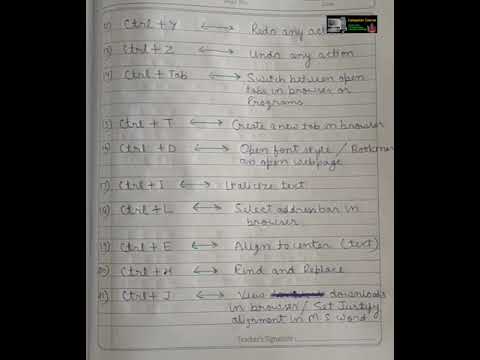 Computer Course
12) Ctrl + Y ⟷ Redo any action
13) Ctrl + Z ⟷ Undo any action
14) Ctrl + Tab ⟷ Switch between open
tabs in browser or
Programs
15) Ctrl + T ⟷ Create a new tab in browser
16) Ctrl + D ⟷ Open font style / Bookmark
an open webpage
17) Ctrl + I ⟷ Italicize text
18) Ctrl + L ⟷ Select address bar in
browser
19) Ctrl + E ⟷ Align to center (text)
20) Ctrl + H ⟷ Find and Replace
21) Ctrl + J ⟷ View downloads
in browser / Set Justify
alignment in M.S Word.
Teacher's Signature